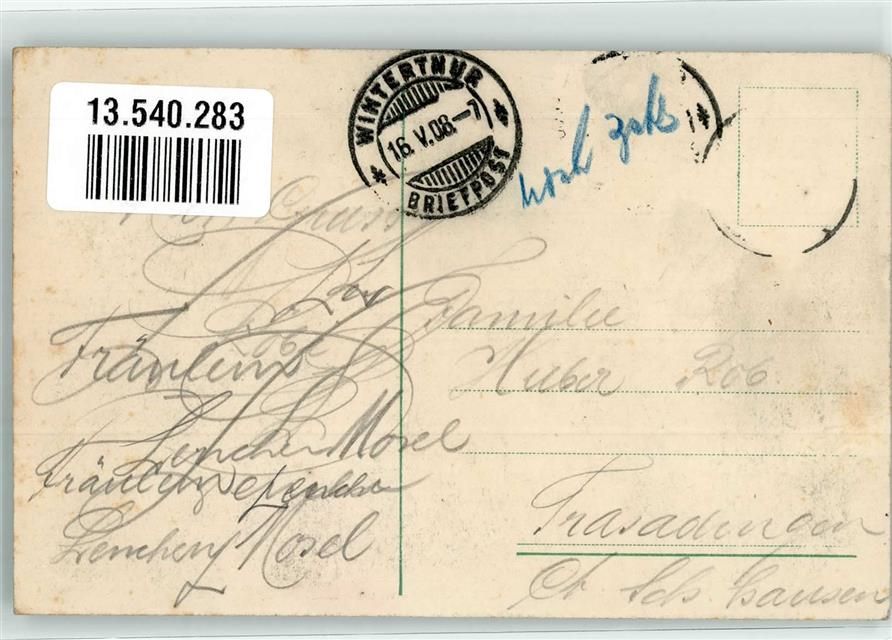 13.540.283
WINTERTHUR
16.V.08.-7
BRIEFPOST
Gruss
Fräulein
Lenchen Mosel
Fräulein Lenchen
Lenchen Mosel
Familie
Huber Rob.
Trasadingen
Ct. Schaffhausen